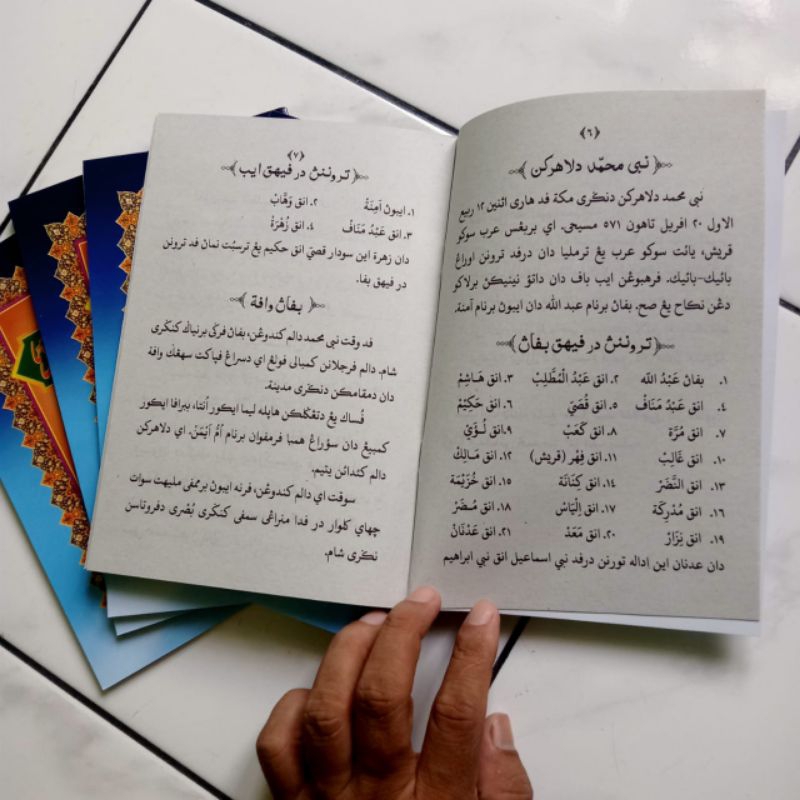 ﴿٦﴾
﴿نبي محمّد دلاهركن﴾
نبي محمد دلاهركن دنڬري مكة ڤد هاري اثنين ١٢ ربيع
الاول ٢٠ اڤريل تاهون ٥٧١ مسيحي. اي بربڠس عرب سوكو
قريش، يائت سوكو عرب يڠ ترمليا دان درڤد ترونن اوراڠ
بائيك-بائيك. ڤرهبوڠن ايب باڤ دان داتؤ نينيكڽ برلاكو
دڠن نكاح يڠ صح. بڤاڽ برنام عبد الله دان ايبوڽ برنام آمنة.
﴿تروننڽ در ڤيهق بڤاڽ﴾
١. بڤاڽ عَبْدُ الله ٢. انق عَبْدُ الْمُطَّلِبْ ٣. انق هَاشِمْ
٤. انق عَبْدَ مَنَافْ ٥. انق قُصَيّ ٦. انق حَكِيْمْ
٧. انق مُرَّة ٨. انق كَعَبْ ٩. انق لُـؤَيّ
١٠. انق غَالِبْ ١١. انق فِهْر (قريش) ١٢. انق مَالِكْ
١٣. انق النَّضَرْ ١٤. انق كِنَانَة ١٥. انق خُزَيْمَة
١٦. انق مُدْرِكَة ١٧. انق اِلْيَاسْ ١٨. انق مُـضَرْ
١٩. انق نِزَارْ ٢٠. انق مَعَدْ ٢١. انق عَدْنَانْ
دان عدنان اين اداله تورنن درڤد نبي اسماعيل انق نبي ابراهيم
﴿٧﴾
﴿تروننڽ در ڤيهق ايب﴾
١. ايبوڽ آمِنَةُ ٢. انق وَهَّابْ
٣. انق عَبْدُ مَنَافْ ٤. انق زُهْرَةْ
دان زهرة اين سودار قصيّ انق حكيم يڠ ترسبُت نماڽ ڤد ترونن
در ڤيهق بڤا.
﴿بڤاڽ وافة﴾
ڤد وقت نبي محمد دالم كندوڠن، بڤاڽ ڤرݢي برنياݢ كنݢري
شام. دالم ڤرجلانن كمبالي ڤولڠ اي دسراڠ ڤڽاكت سهڠݢ وافة
دان دمقامكن دنݢري مدينة.
ڤُساك يڠ دتڠݢلكن هاڽله ليما ايكور اُنتا، ببراڤا ايكور
كمبيڠ دان سؤراڠ همبا ڤرمڤوان برنام اُمُّ اَيْمَنْ. اي دلاهركن
دالم كئدائن يتيم.
سوقت اي دالم كندوڠن، ڤرنه ايبوڽ برممڤي مليهت سوات
چهاي كلوار در ڤدا منراڠي سمڤي كنݢري بُصْرى دڤرو تاسن
نݢري شام.